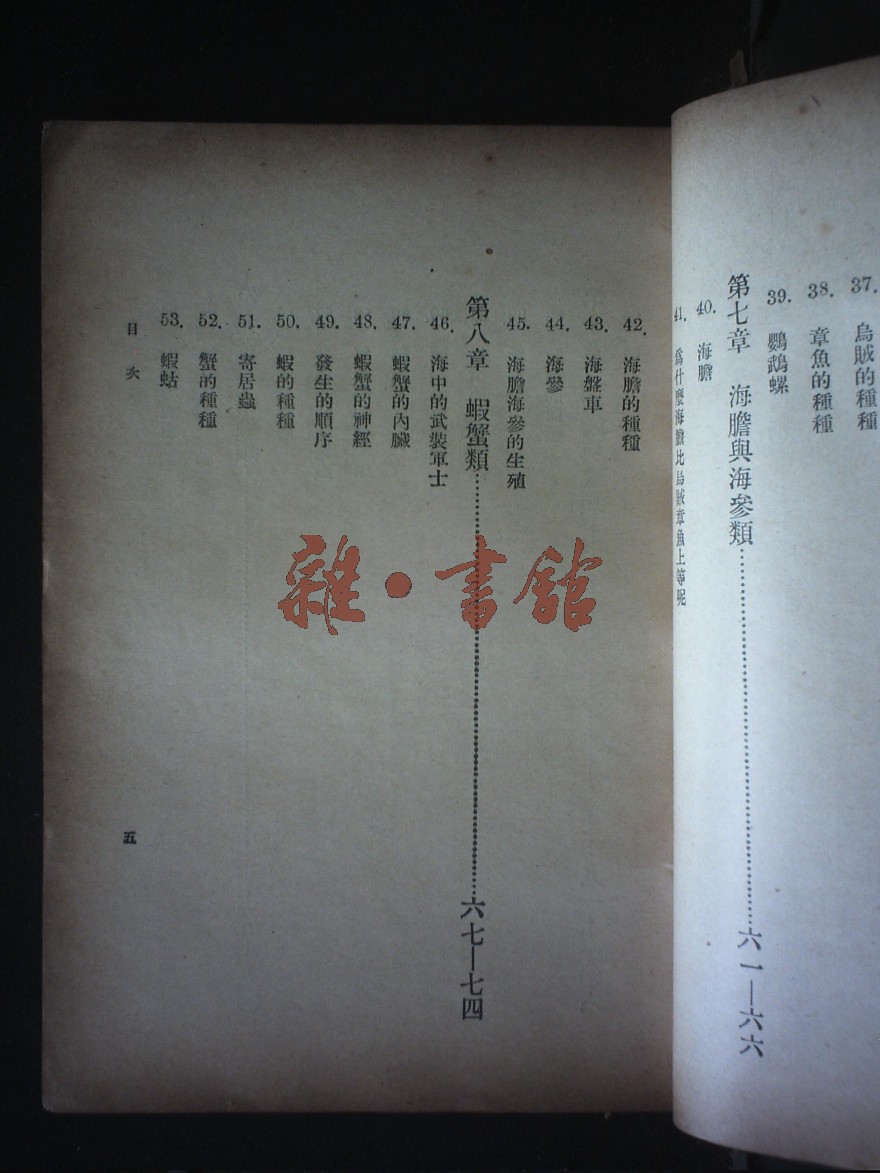 37. 烏賊的種種
38. 章魚的種種
39. 鸚鵡螺
第七章 海膽與海參類……六一—六六
40. 海膽
41. 爲什麼海膽比烏賊章魚上等呢
42. 海膽的種種
43. 海盤車
44. 海參
45. 海膽海參的生殖
第八章 蝦蟹類……六七—七四
46. 海中的武裝軍士
47. 蝦蟹的內臟
48. 蝦蟹的神經
49. 發生的順序
50. 蝦的種種
51. 寄居蟲
52. 蟹的種種
53. 蝦蛄
目次
五
雜·書館